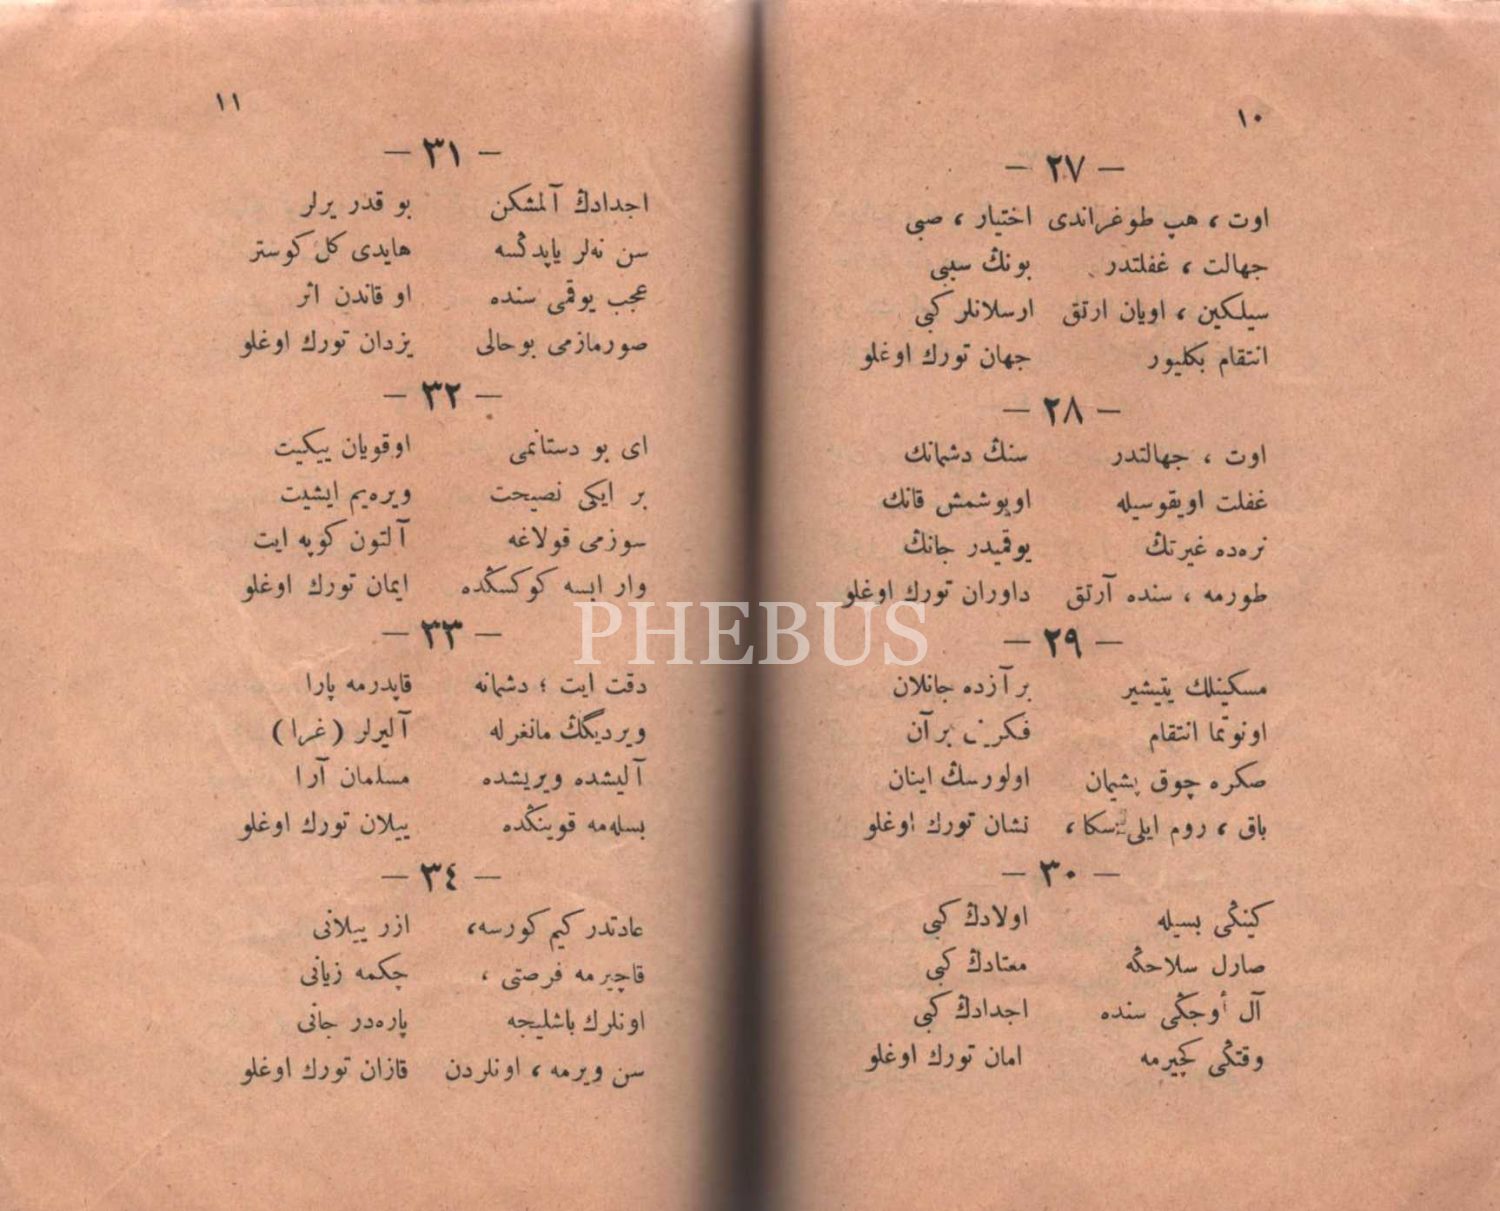 ١٠
— ٢٧ —
اوت ، هپ طوغراندی اختیار ، صبی
جهالت ، غفلتدر بونڭ سببی
سیلکین ، اویان ارتق ارسلانلر کبی
انتقام بکلیور جهان تورك اوغلو
— ٢٨ —
اوت ، جهالتدر سنڭ دشمانك
غفلت اویقوسیله اویوشمش قانك
نره‌ده غیرتڭ یوقمیدر جانڭ
طورمه ، سنده آرتق داوران تورك اوغلو
— ٢٩ —
مسکینلك یتیشیر بر آزده جانلان
اونوتما انتقام فکرین بر آن
صکره چوق پشیمان اولورسڭ اینان
باق ، روم ایلی سکا ، نشان تورك اوغلو
— ٣٠ —
کینڭی بسیله اولادڭ کبی
صارل سلاحڭه معتادڭ کبی
آل اُوجڭی سنده اجدادڭ کبی
وقتڭی کچیرمه امان تورك اوغلو
١١
— ٣١ —
اجدادڭ آلمشکن بو قدر یرلر
سن نه‌لر یاپدڭسه هایدی کل کوستر
عجب یوقمی سنده او قاندن اثر
صورمازمی بوحالی یزدان تورك اوغلو
— ٣٢ —
ای بو دستانمی اوقویان ییکیت
بر ایکی نصیحت ویره‌یم ایشیت
سوزمی قولاغه آلتون کوپه ایت
وار ایسه کوکسڭده ایمان تورك اوغلو
— ٣٣ —
دقت ایت ؛ دشمانه قاپدرمه پارا
ویردیگڭ مانغرله آلیرلر (غرا)
آلیشده ویریشده مسلمان آرا
بسله‌مه قوینڭده ییلان تورك اوغلو
— ٣٤ —
عادتدر کیم کورسه، ازر ییلانی
قاچیرمه فرصتی ، چکمه زیانی
اونلرك باشلیجه پاره‌در جانی
سن ویرمه ، اونلردن قازان تورك اوغلو
PHEBUS